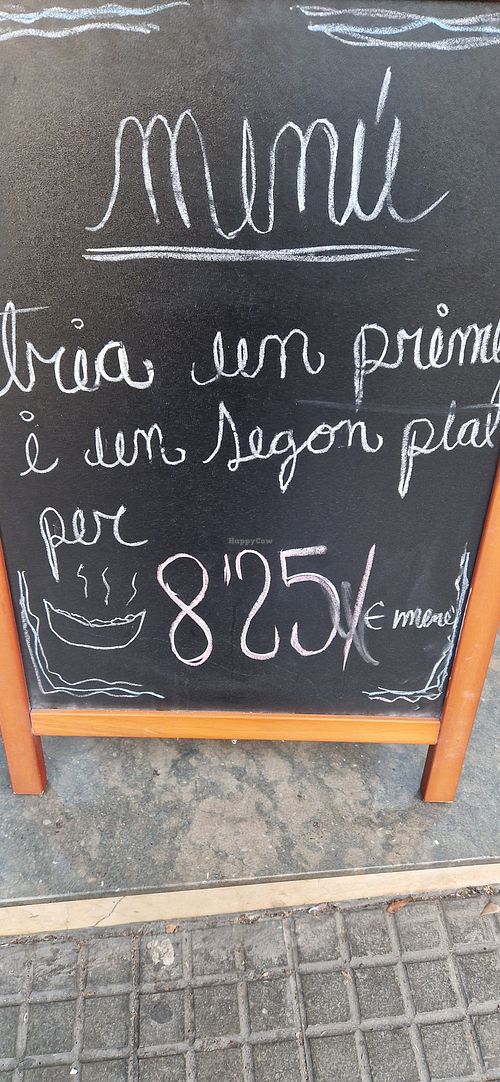 Menú
tria un prime
i un segon plat
per
8'25/€ menú
HappyCow